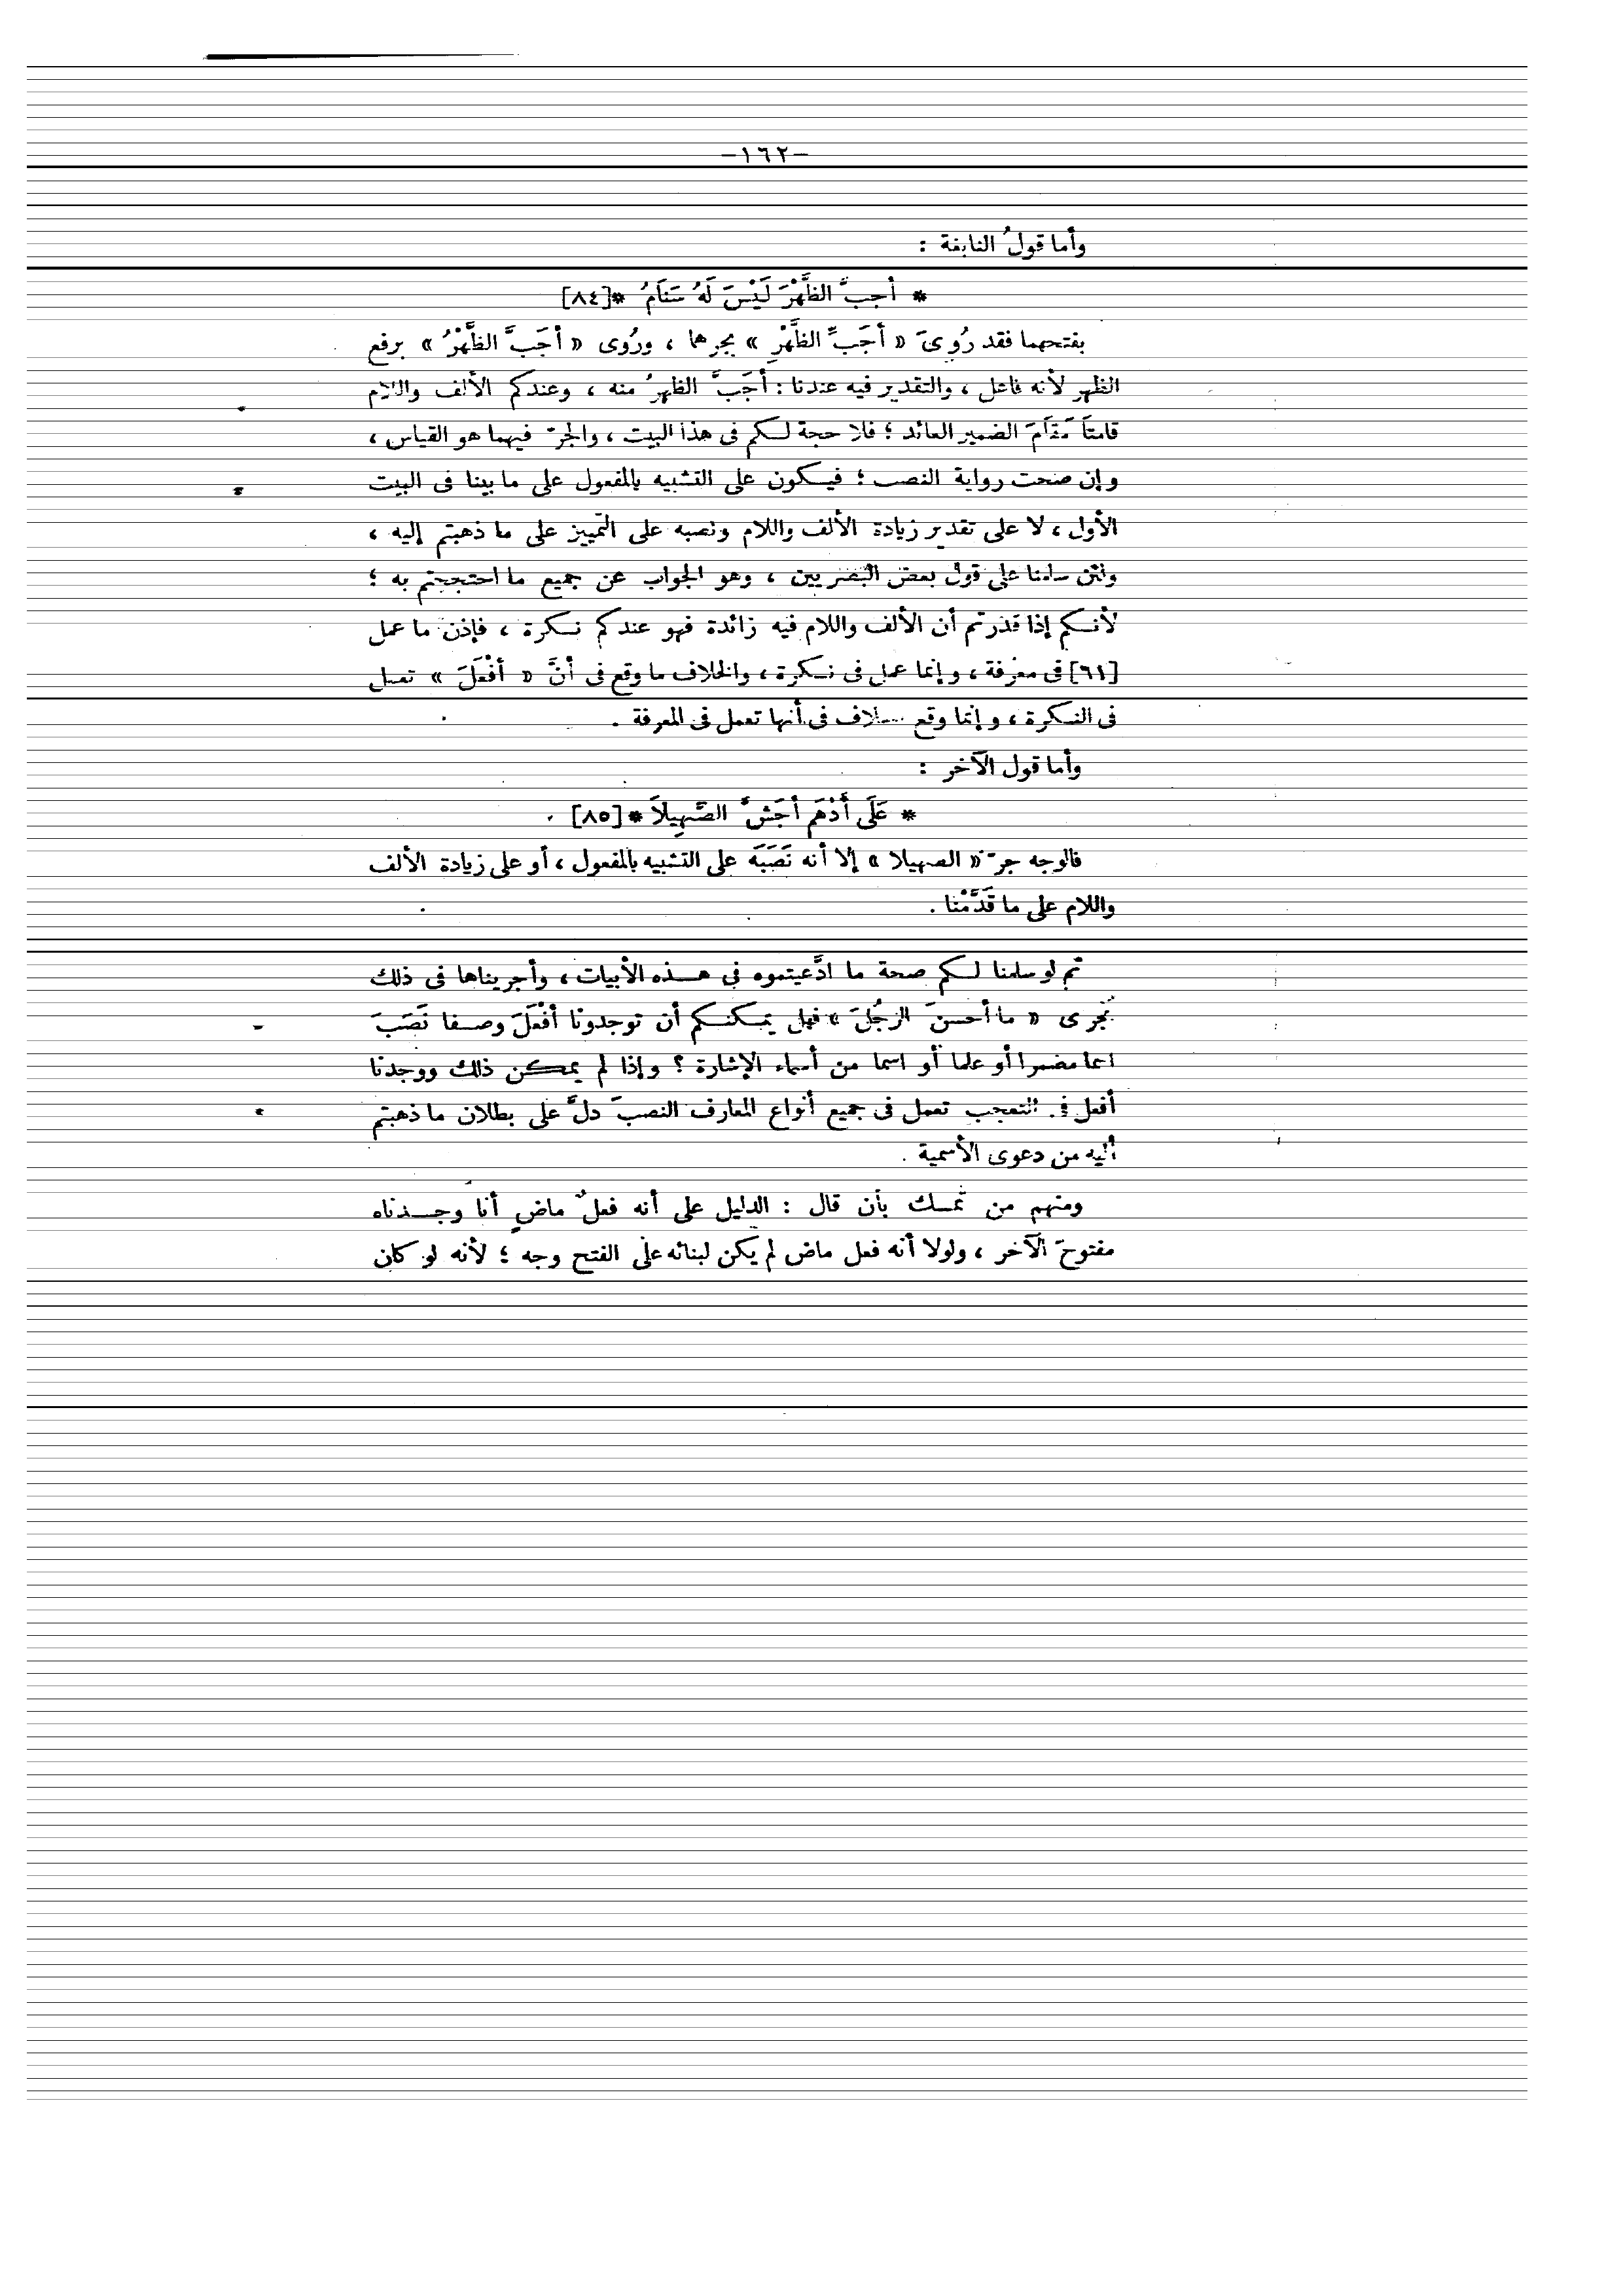 -١٦٢-
وأما قولُ النابغة :
* أجبَّ الظَّهْرَ لَيْسَ لَهُ سَنَامُ *[٨٤]
بفتحهما فقد رُوِىَ « أجَبِّ الظَّهْرِ » بجرهما ، ورُوى « أجَبَّ الظَّهْرُ » برفع
الظهر لأنه فاعل ، والتقدير فيه عندنا : أجَبَّ الظهرُ منه ، وعندكم الألف واللام
قامتَا مَقَامَ الضمير العائد ؛ فلا حجة لكم فى هذا البيت ، والجرّ فيهما هو القياس ،
وإن صحت رواية النصب ؛ فيكون على التشبيه بالمفعول على ما بينا فى البيت
الأول ، لا على تقدير زيادة الألف واللام ونصبه على التمييز على ما ذهبتم إليه ،
ولئن سلمنا على قول بعض البصريين ، وهو الجواب عن جميع ما احتججتم به ؛
لأنكم إذا قدرتم أن الألف واللام فيه زائدة فهو عندكم نكرة ، فإذن ما عمل
[٦١] فى معرفة ، وإنما عمل فى نكرة ، والخلاف ما وقع فى أنَّ « أفْعَلَ » تعمل
فى النكرة ، وإنما وقع فى أنها تعمل فى المعرفة .
وأما قول الآخر :
* عَلَى أَدْهَمٍ أجَشَّ الصَّهِيلاَ *[٨٥]
فالوجه جرّ « الصهيلا » إلا أنه نَصَبَه على التشبيه بالمفعول ، أو على زيادة الألف
واللام على ما قَدَّمْنا .
ثم لو سلمنا لكم صحة ما ادَّعيتموه فى هذه الأبيات ، وأجريناها فى ذلك
مجرى « ما أحسنَ الرَّجُلَ » فهل يمكنكم أن توجدونا أفْعَلَ وصفا نَصَبَ
اسما مضمرا أو علما أو اسما من أسماء الإشارة ؟ وإذا لم يمكن ذلك ووجدنا
أفعل فى التعجب تعمل فى جميع أنواع المعارف النصبَ دلَّ على بطلان ما ذهبتم
إليه من دعوى الأسمية .
ومنهم من تمسك بأن قال : الدليل على أنه فعلٌ ماضٍ أنا وجدناه
مفتوحَ الآخر ، ولولا أنه فعل ماض لم يكن لبنائه على الفتح وجه ؛ لأنه لو كان